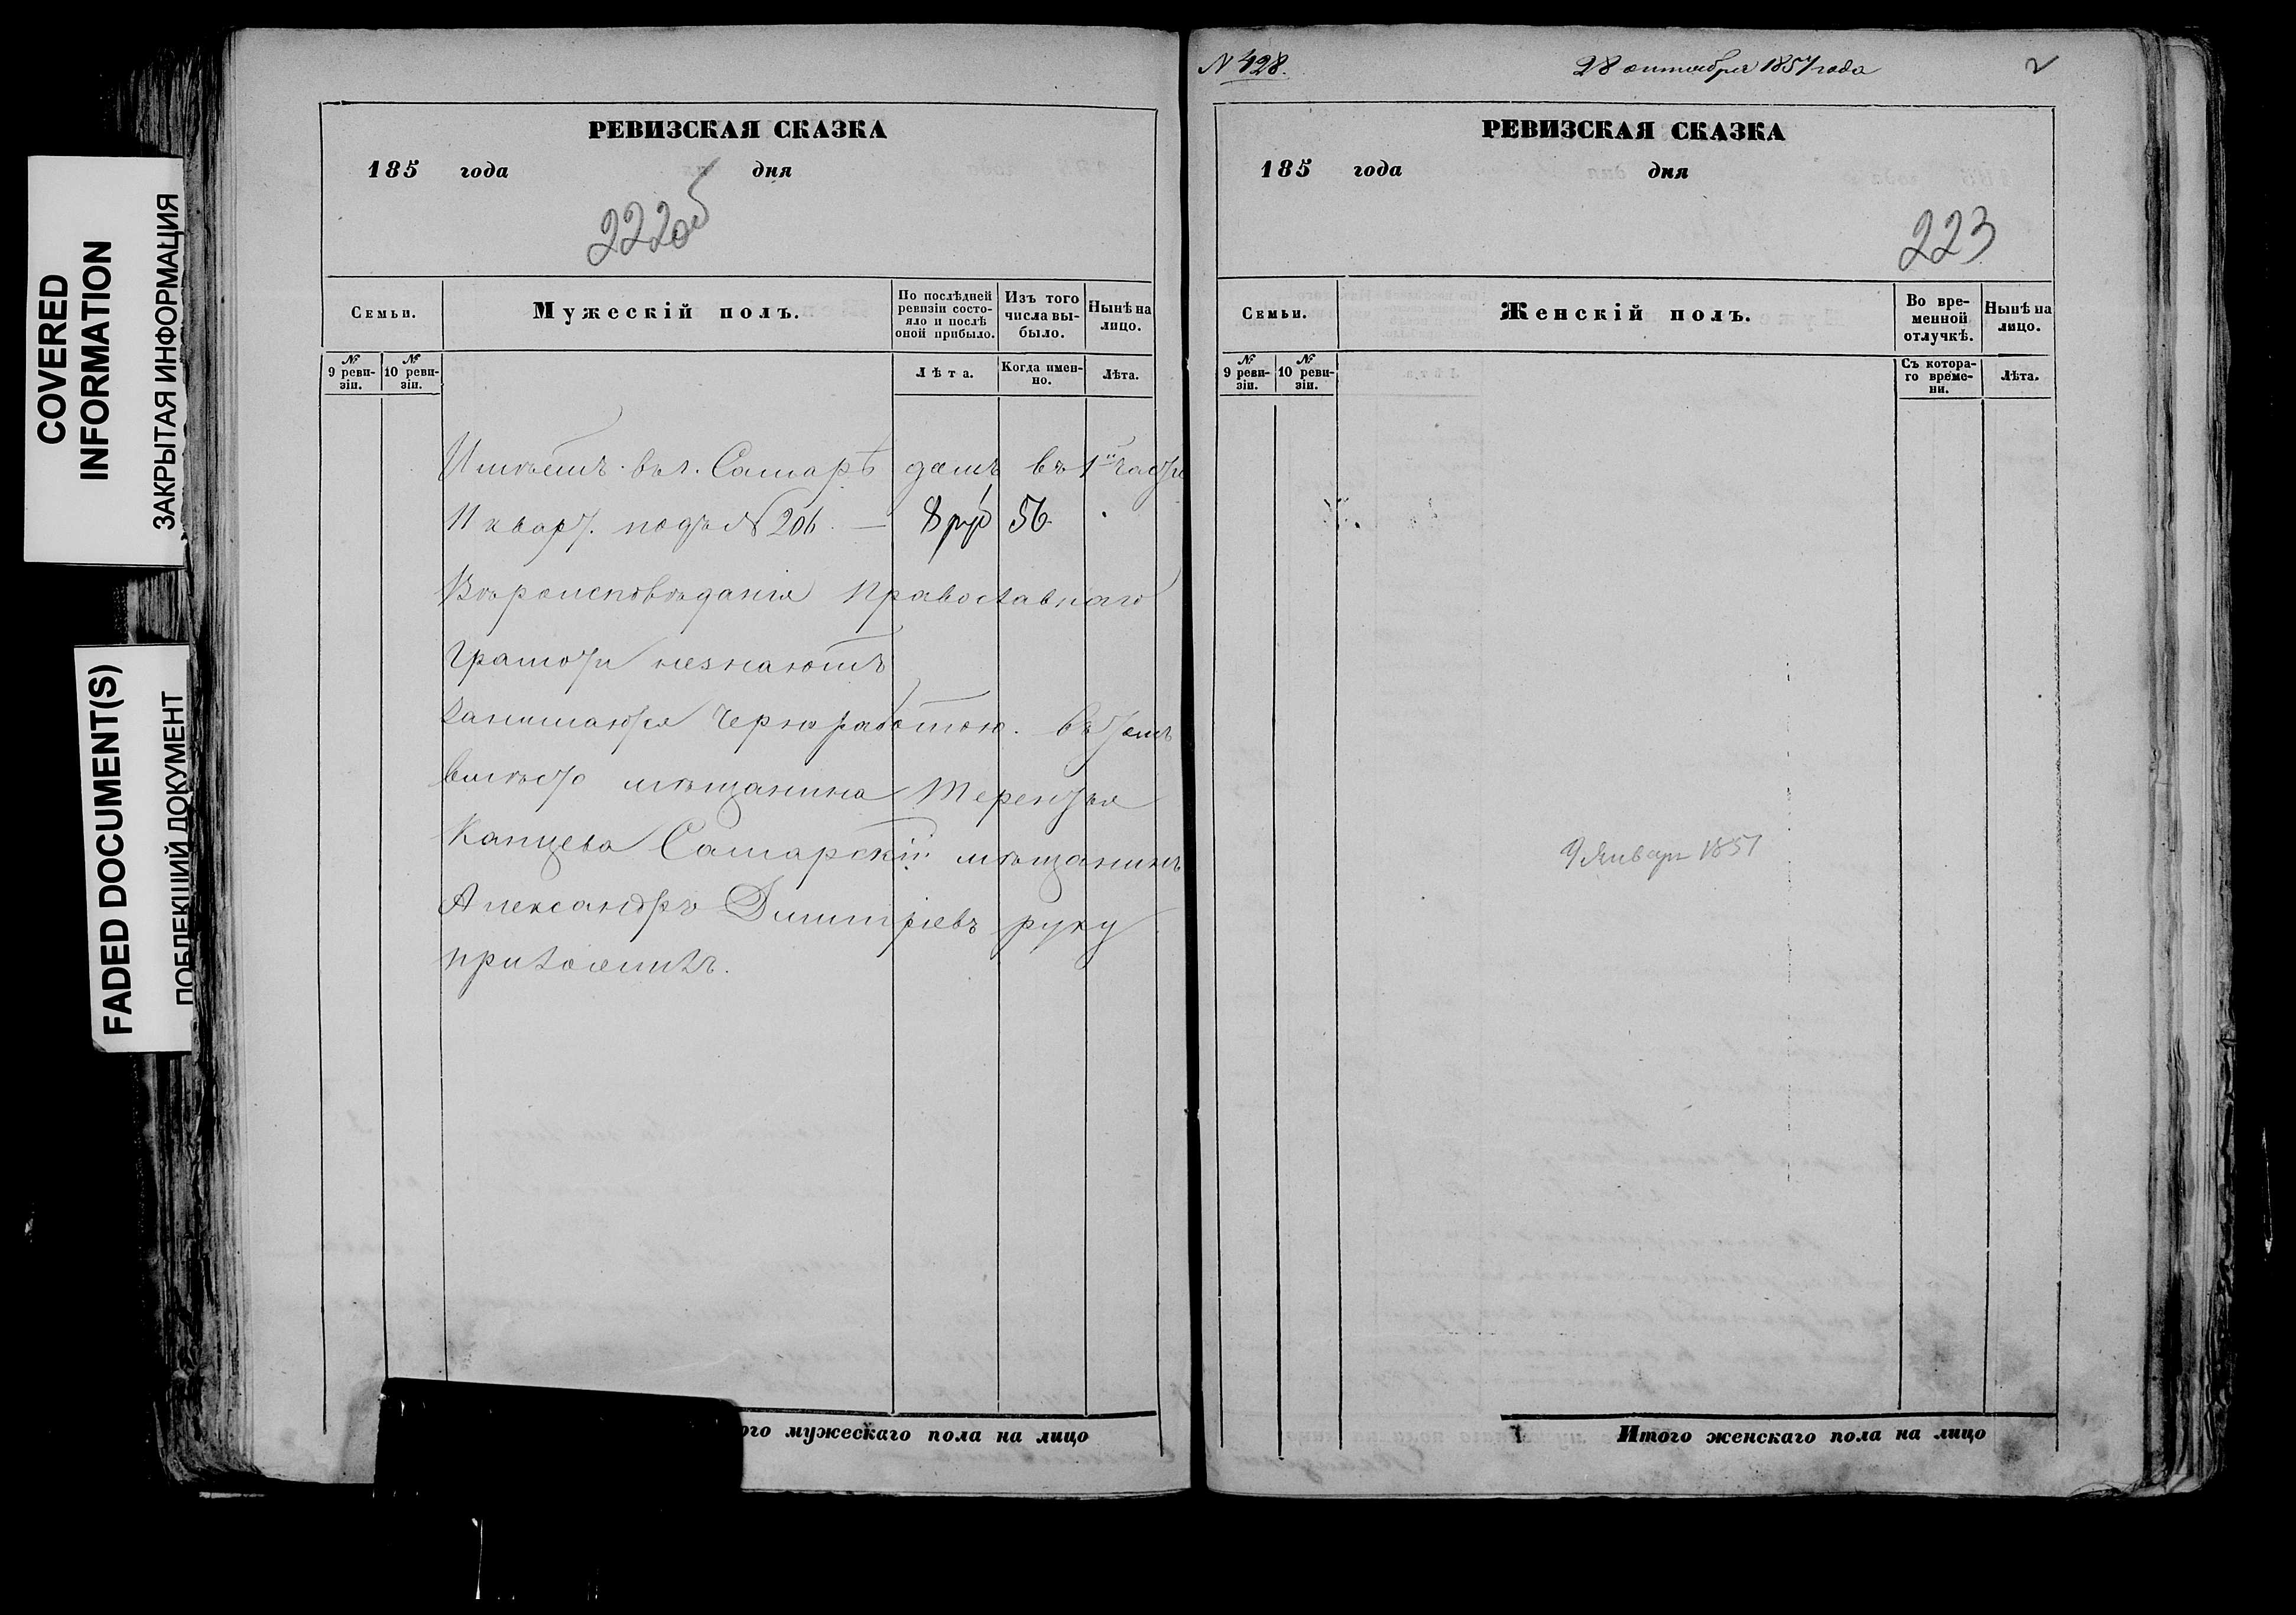 COVERED
INFORMATION
ЗАКРЫТАЯ ИНФОРМАЦИЯ
FADED DOCUMENT(S)
ПОБЛЕКШИЙ ДОКУМЕНТ
РЕВИЗСКАЯ СКАЗКА
185 года дня
222об
Семьи.
Мужескій полъ.
По послѣдней
ревизіи состо-
яло и послѣ
оной прибыло.
Изъ того
числа вы-
было.
Нынѣ на
лицо.
№
9 реви-
зіи.
№
10 реви-
зіи.
Лѣта.
Когда имен-
но.
Лѣта.
Имѣетъ въ г. Самарѣ домъ въ 1й части
11 кварт. подъ № 206. — 8 руб 56
Вѣроисповѣданія Православнаго
Грамоти незнаютъ
Занимаются чернработою. въ томъ
вмѣсто мѣщанина Терентья
Капцева Самарскій мѣщанинъ
Александръ Дмитріевъ руку
приложилъ.
ого мужескаго пола на лицо
N 428.
28 октября 1857 года
2
РЕВИЗСКАЯ СКАЗКА
185 года дня
223
Семьи.
Женскій полъ.
Во вре-
менной
отлучкѣ.
Нынѣ на
лицо.
№
9 реви-
зіи.
№
10 реви-
зіи.
Съ котора-
го време-
ни.
Лѣта.
Январ 1851
Итого женскаго пола на лицо